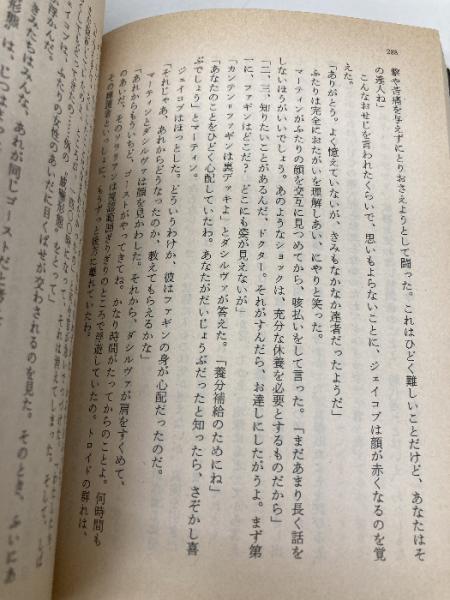 288
撃や苦痛を与えずにとりおさえようとして闘った。これはひどく難しいことだけど、あなたはそ
の達人ね」
こんなおせじを言われたくらいで、思いもよらないことに、ジェイコブは顔が赤くなるのを覚
えた。
「ありがとう。よく憶えていないが、きみもなかなか達者だったようだ」
ふたりは完全におたがいを理解しあい、にやりと笑った。
マーティンがふたりの顔を交互に見つめてから、咳払いをして言った。「まだあまり長く話を
しないほうがいいでしょう。あのようなショックは、充分な休養を必要とするものだから」
「二、三、知りたいことがあるんだ、ドクター。それがすんだら、お達しにしたがうよ。まず第
一に、ファギンはどこだ？どこにも姿が見えないが」
「カンテン＝ファギンは裏デッキよ」とダシルヴァが答えた。「養分補給のためにね」
「あなたのことをひどく心配していたわ。あなたがだいじょうぶだったと知ったら、さぞかし喜
ぶでしょう」とマーティン。
ジェイコブはほっとした。どういうわけか、彼はファギンの身が心配だったのだ。
「それじゃあ、あれからどうなったのか、教えてもらえるかな」
マーティンとダシルヴァは顔を見かわした。それから、ダシルヴァが肩をすくめて、
「あれからもういちど、ゴーストがやってきてね。かなり時間がたってからのことよ。何時間も
のあいだ、そのソラリアンは視認範囲ぎりぎりのところで浮遊していたの。トロイドの群れは、
その擁護者といっしょに、もうずっと後方に離れていたわ。
ジェイコブは、ふたりの女性のあいだに目くばせが交わされるのを見た。そのとき、ふいにあ